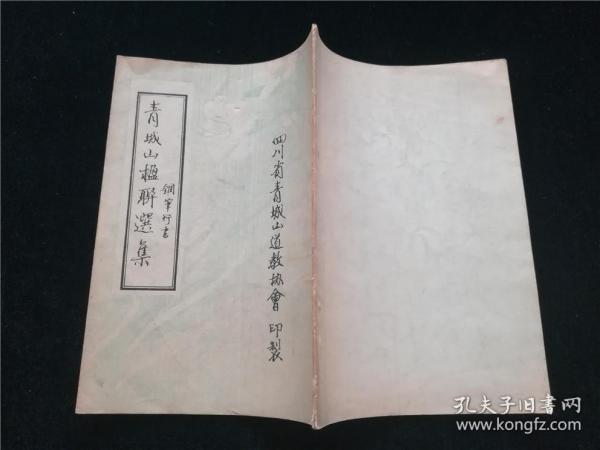 青城山楹聯選集
鋼筆行書
四川省青城山道教協會 印製
孔夫子旧书网
www.kongfz.com